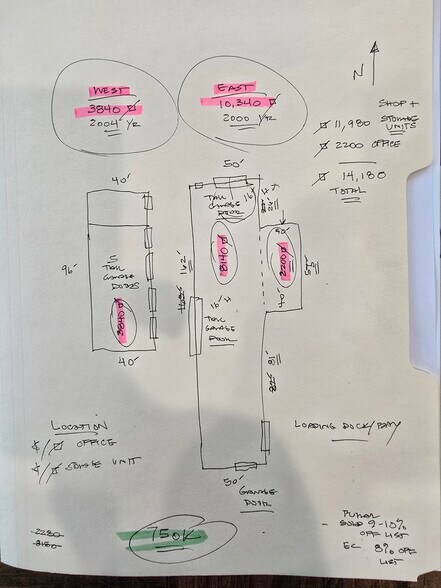 WEST
3840
2004 YR
EAST
10,340
2000 YR
N
SHOP +
STORAGE
UNITS
11,980
2200 OFFICE
14,180
TOTAL
40'
96'
5
TALL
GARAGE
DOORS
3840
40'
50'
TALL
GARAGE
DOOR
16'
162'
8140
16' H
TALL
GARAGE
DOOR
2200
40'
81'
50'
GARAGE
DOOR
LOADING DOCK/BAY
LOCATION
$/ OFFICE
$/ STORAGE UNIT
2280
3180
750K
SOLD 9-10%
OFF LIST
EC 8% OFF
LIST